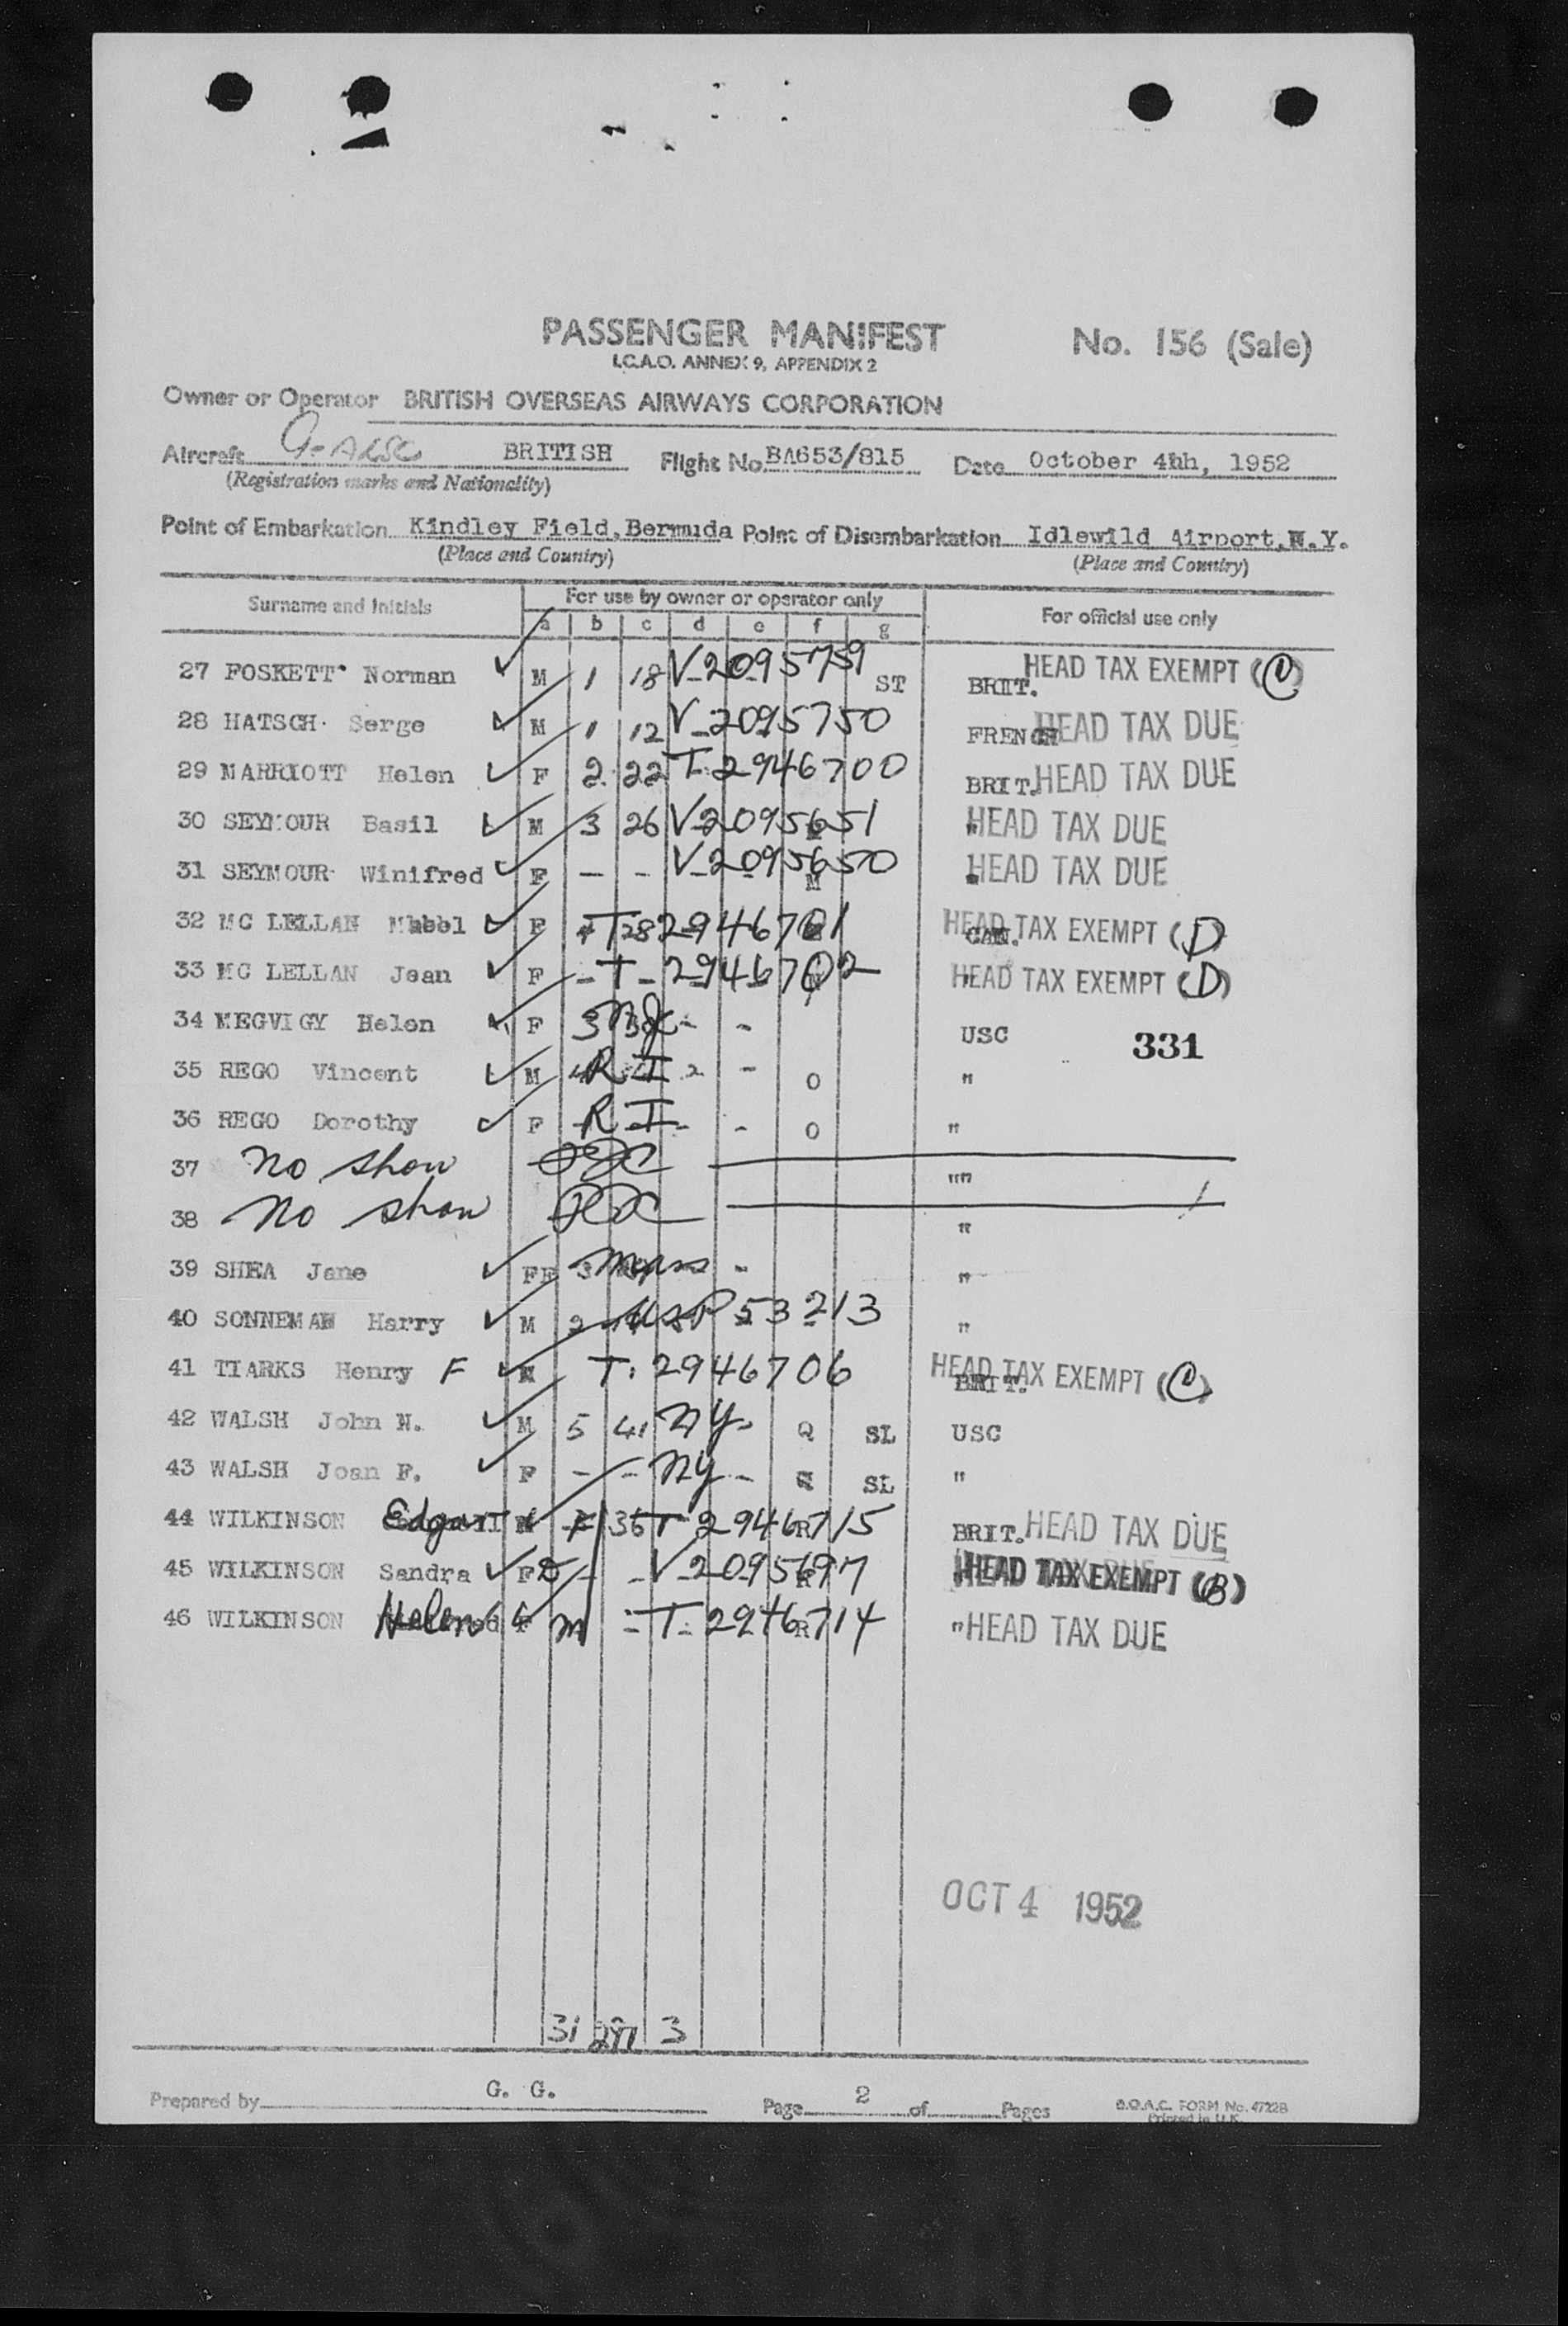 PASSENGER MANIFEST No. 156 (Sale)
I.C.A.O. ANNEX 9, APPENDIX 2
Owner or Operator BRITISH OVERSEAS AIRWAYS CORPORATION
Aircraft G-ALSC BRITISH Flight No. BA653/815 Date October 4hh, 1952
(Registration marks and Nationality)
Point of Embarkation Kindley Field, Bermuda Point of Disembarkation Idlewild Airport, N.Y.
(Place and Country) (Place and Country)
Surname and Initials For use by owner or operator only For official use only
a b c d e f g
27 FOSKETT Norman M 1 18 V-2095759 ST BRIT. HEAD TAX EXEMPT (C)
28 HATSCH Serge M 1 12 V-2095750 FRENCH HEAD TAX DUE
29 MARRIOTT Helen F 2 22 T-2946700 BRIT. HEAD TAX DUE
30 SEYMOUR Basil M 3 26 V-2095651 " HEAD TAX DUE
31 SEYMOUR Winifred F - - V-2095650 M " HEAD TAX DUE
32 MC LELLAN F T 28 2946701 CAN. HEAD TAX EXEMPT (D)
33 MC LELLAN Jean F - T - 2946702 " HEAD TAX EXEMPT (D)
34 MEGVIGY Helen F 3 - - USC 331
35 REGO Vincent M R I 2 - O "
36 REGO Dorothy F R I - - O "
37 No show ""
38 No show "
39 SHEA Jane F 3 Mass - "
40 SONNEMAN Harry M 2 USP 53213 "
41 TIARKS Henry F M T. 2946706 BRIT. HEAD TAX EXEMPT (C)
42 WALSH John N. M 5 41 NY - Q SL USC
43 WALSH Joan F. F - - NY - SL "
44 WILKINSON Edgar 36 T 2946715 R BRIT. HEAD TAX DUE
45 WILKINSON Sandra F - - V-2095697 " HEAD TAX EXEMPT (B)
46 WILKINSON Helen F M - T-2946714 R " HEAD TAX DUE
OCT 4 1952
31 3
Prepared by G. G. Page 2 of Pages B.O.A.C. FORM No. 4722B
Printed in U.K.